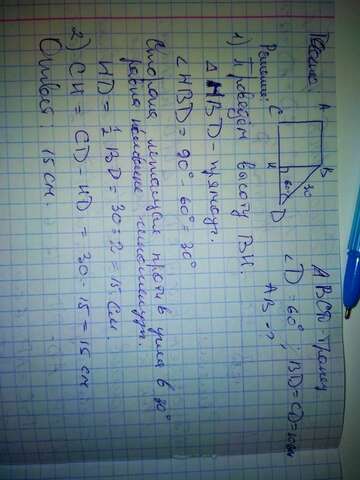 ABCD - трапец
∠D = 60°; BD = CD = 30см
AB - ?
A
B
C
H
D
60°
30
Решение:
1) Проведём высоту BH.
Δ HBD - прямоуг.
∠HBD = 90° - 60° = 30°
Сторона лежащая против угла в 30°
равна половине гипотенузы.
HD = ½ BD = 30 : 2 = 15 см.
2) CH = CD - HD = 30 - 15 = 15 см.
Ответ: 15 см.